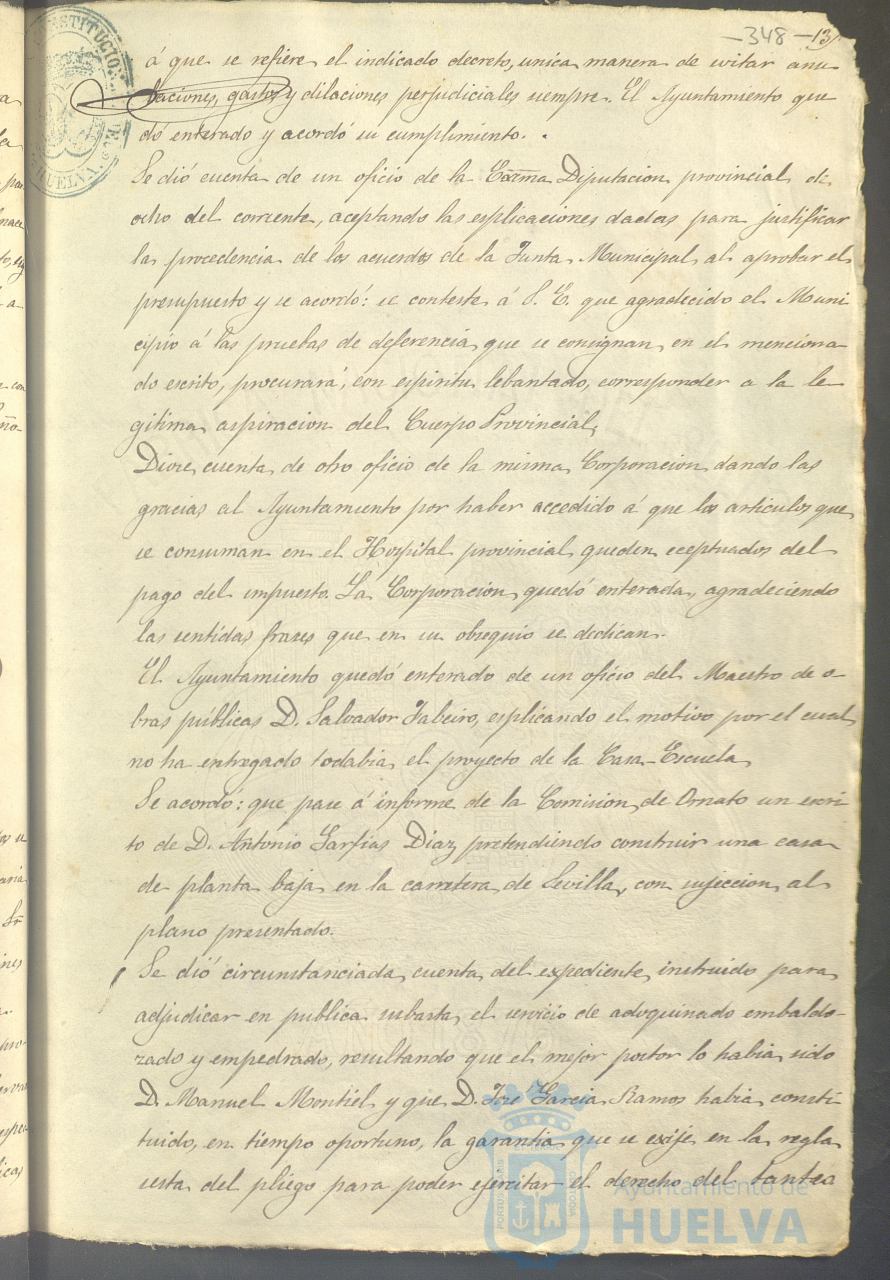 -348- 13
á que se refiere el indicado decreto, unica manera de evitar anu
laciones, gastos y dilaciones perjudiciales siempre. El Ayuntamiento que
dó enterado y acordó su cumplimiento.
Se dió cuenta de un oficio de la Exma Diputacion provincial de
ocho del corriente, aceptando las esplicaciones dadas para justificar
la procedencia de los acuerdos de la Junta Municipal al aprobar el
presupuesto y se acordó: se conteste á S. E. que agradecido el Muni
cipio á las pruebas de deferencia que se consignan en el menciona
do escrito, procurará, con espiritu lebantado, corresponder a la le
gitima aspiracion del Cuerpo Provincial.
Diose cuenta de otro oficio de la misma Corporacion dando las
gracias al Ayuntamiento por haber accedido á que los articulos que
se consuman en el Hospital provincial queden eceptuados del
pago del impuesto. La Corporacion quedó enterada, agradeciendo
las sentidas frases que en su obsequio se dedican.
El Ayuntamiento quedó enterado de un oficio del Maestro de o
bras públicas D. Salvador Tabeiro, esplicando el motivo por el cual
no ha entregado todabia el proyecto de la Casa-Escuela
Se acordó: que pase á informe de la Comision de Ornato un escri
to de D. Antonio Garfias Diaz pretendiendo construir una casa
de planta baja en la carretera de Sevilla, con sujeccion al
plano presentado.
Se dió circunstanciada cuenta del expediente instruido para
adjudicar en publica subasta el servicio de adoquinado embaldo-
zado y empedrado, resultando que el mejor postor lo habia sido
D. Manuel Montiel y que D. José Garcia Ramos habia consti
tuido, en tiempo oportuno, la garantia que se exije en la regla
sesta del pliego para poder ejercitar el derecho del tanteo
Ayuntamiento de
HUELVA